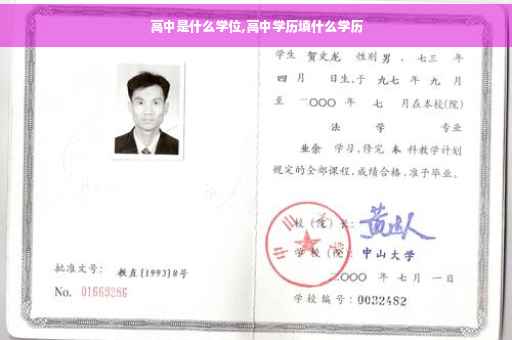 高中是什么学位,高中学历填什么学历
学生 贺文龙 性别 男 、七三 年
四 月 日生,于 九七 年 九 月
至 二○○○ 年 七 月在本校(院)
法 学 专业
业余 学习,修完 本 科教学计划
规定的全部课程,成绩合格,准予毕业。
校(院)长:
学校(院): 中山大学
二○○○ 年 七 月 一 日
学校编号:0032482
批准文号: 教直[1993]8号
No. 01669286